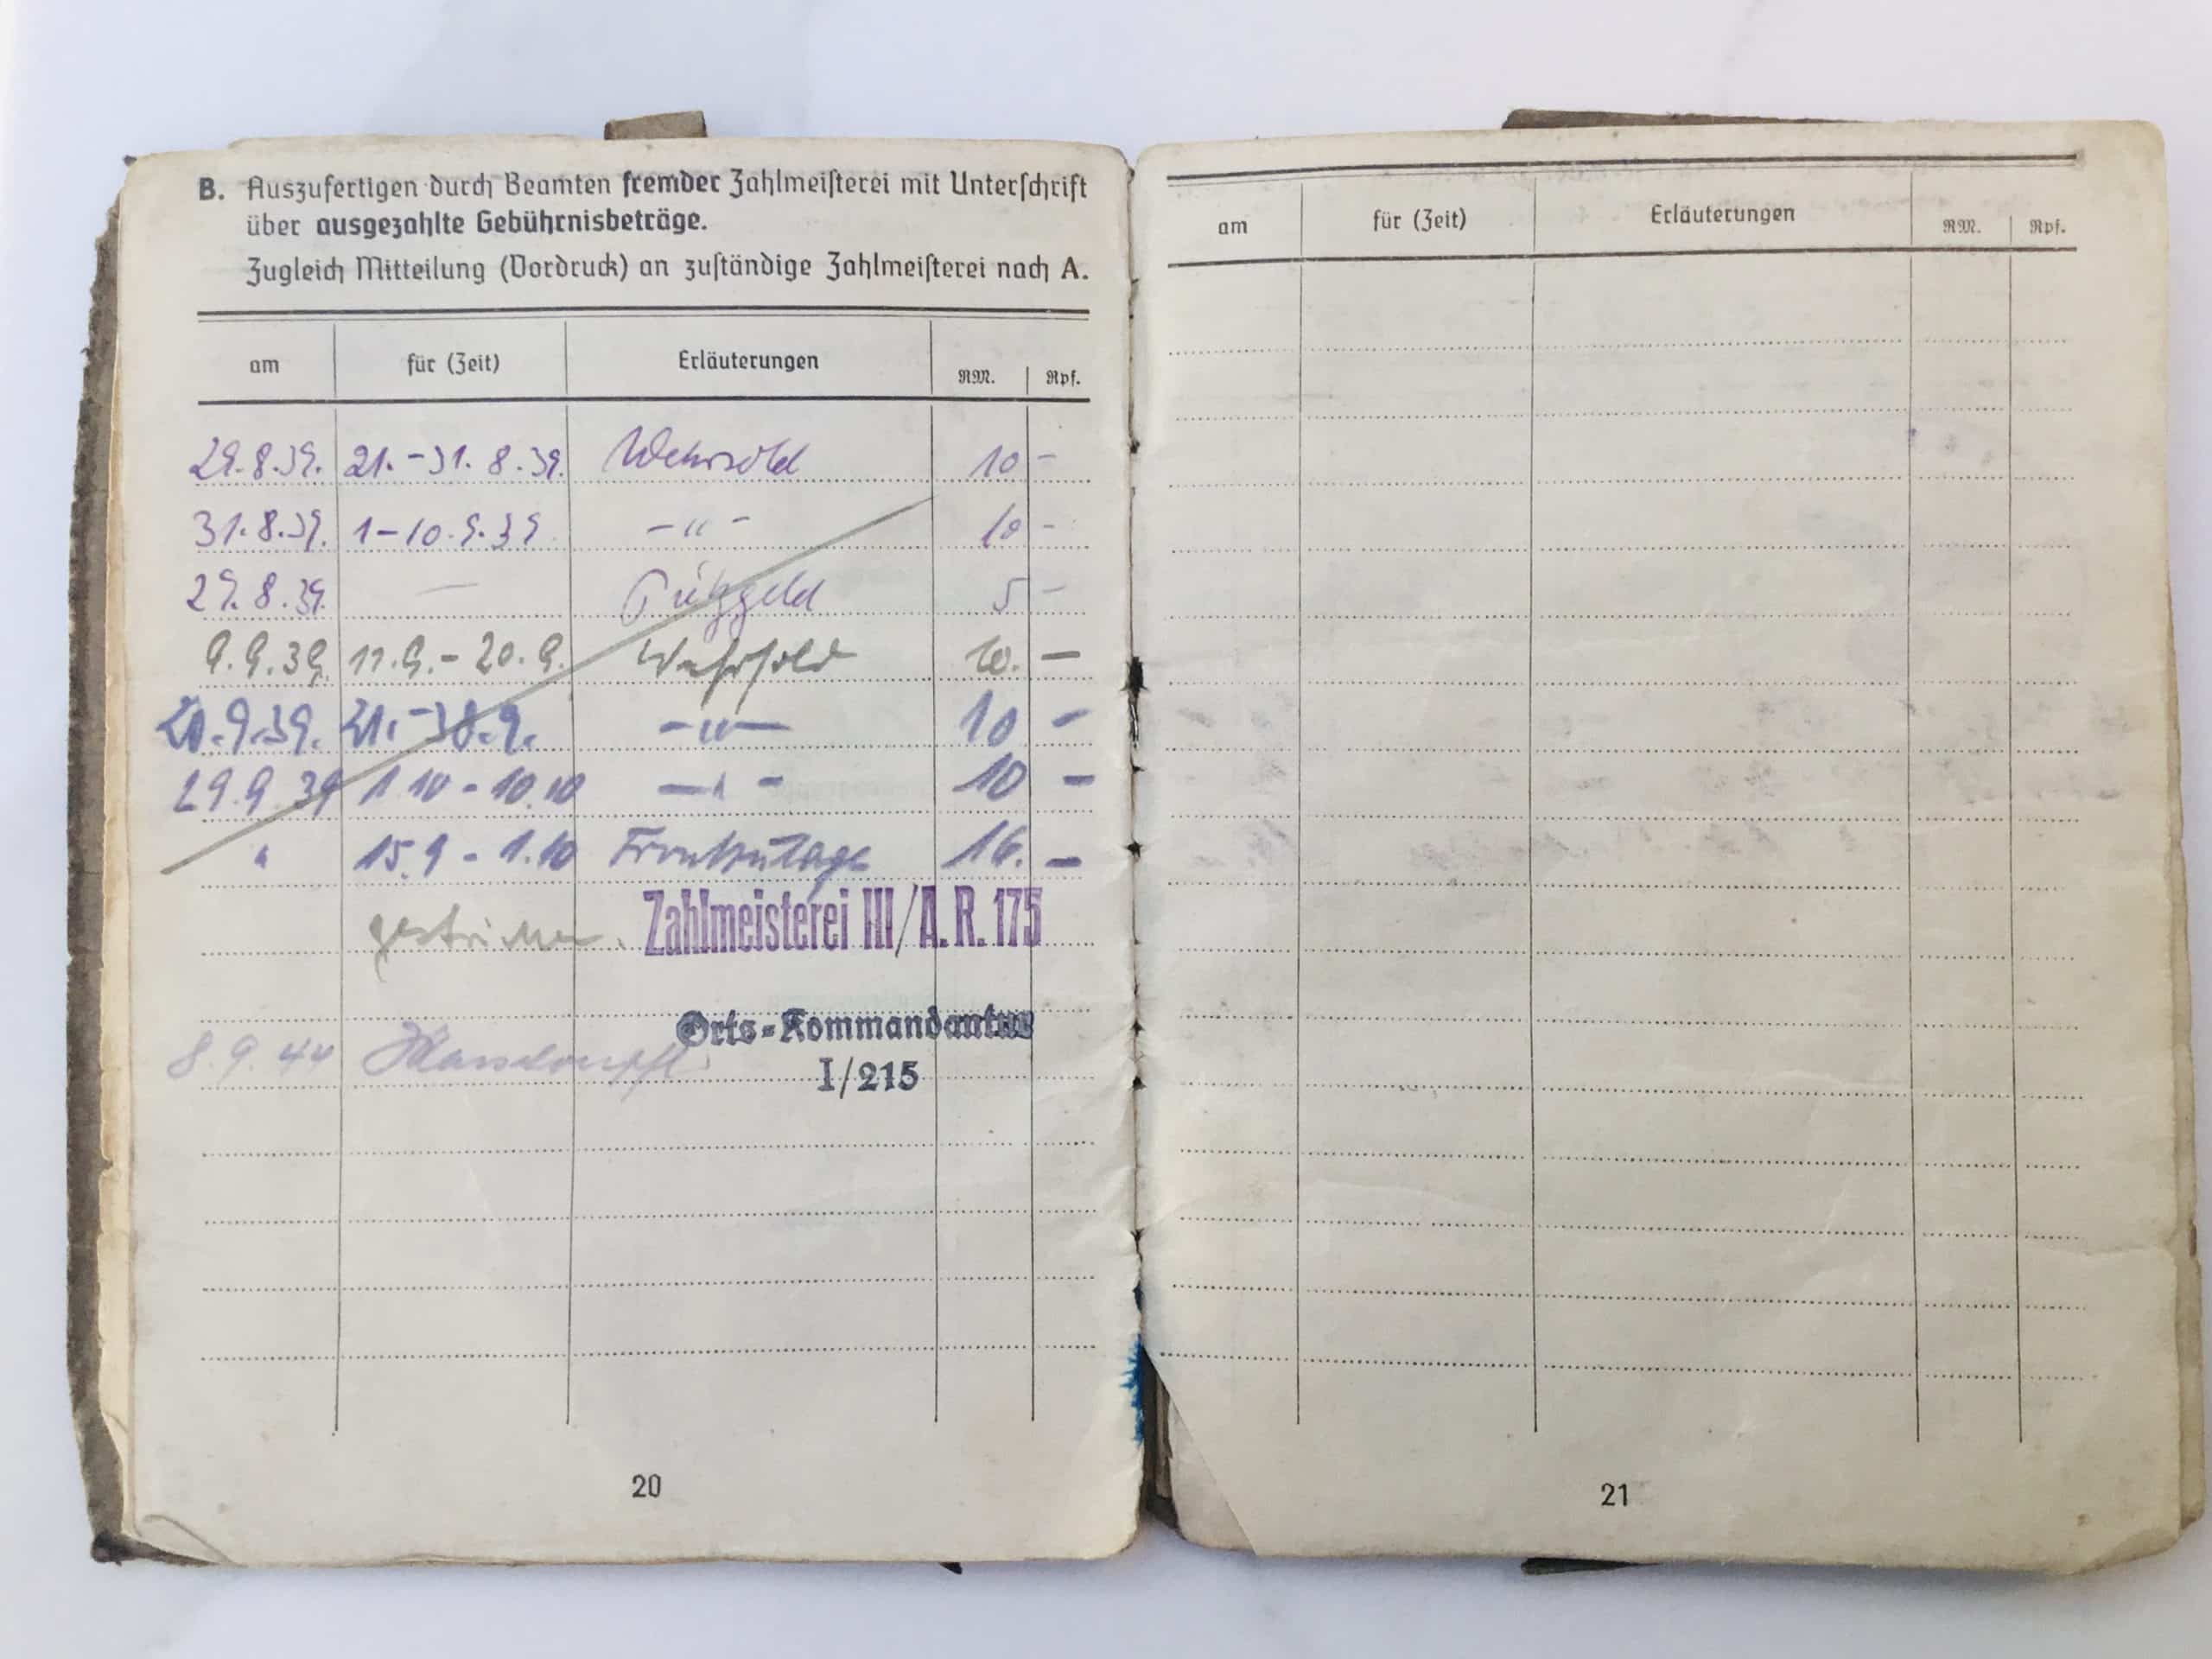 B. Auszufertigen durch Beamten fremder Zahlmeisterei mit Unterschrift
über ausgezahlte Gebührnisbeträge.
Zugleich Mitteilung (Vordruck) an zuständige Zahlmeisterei nach A.
am für (Zeit) Erläuterungen RM. Rpf.
29.8.39. 21.-31.8.39. Wehrsold 10 -
31.8.39. 1-10.9.39. -"- 10 -
29.8.39. — Putzgeld 5 -
9.9.39. 11.9.-20.9. Wehrsold 10. —
20.9.39. 21.-30.9. -"- 10 -
29.9.39 1.10-10.10 -"- 10 -
" 15.9-1.10 Frontzulage 16. -
gestrichen. Zahlmeisterei III/A.R. 175
Orts-Kommandantur
8.9.44 I/215
20
am für (Zeit) Erläuterungen RM. Rpf.
21